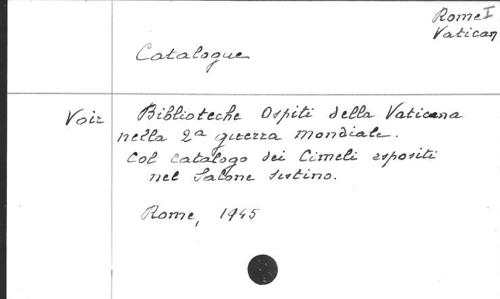 Rome I
Vatican
Catalogue
Voir Biblioteche Ospiti della Vaticana
nella 2a guerra mondiale.
Col catalogo dei Cimeli esposti
nel Salone sistino.
Rome, 1945